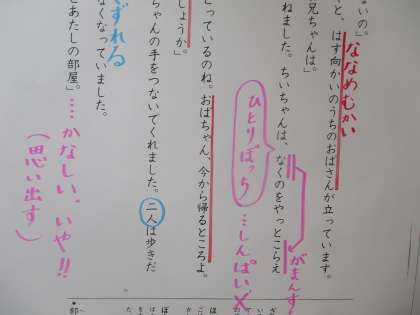 ないの。」
と、はす向かいのうちのおばさんが立っています。
ななめむかい
兄ちゃんは。」
ねました。ちいちゃんは、なくのをやっとこらえ
がまんす
ひとりぼっち
…しんぱい
とっているのね。おばちゃん、今から帰るところよ。
しょうか。」
ちゃんの手をつないでくれました。二人は歩きだ
ずれる
なくなっていました。
とあたしの部屋。」
…かなしい、いや!!
(思い出す)